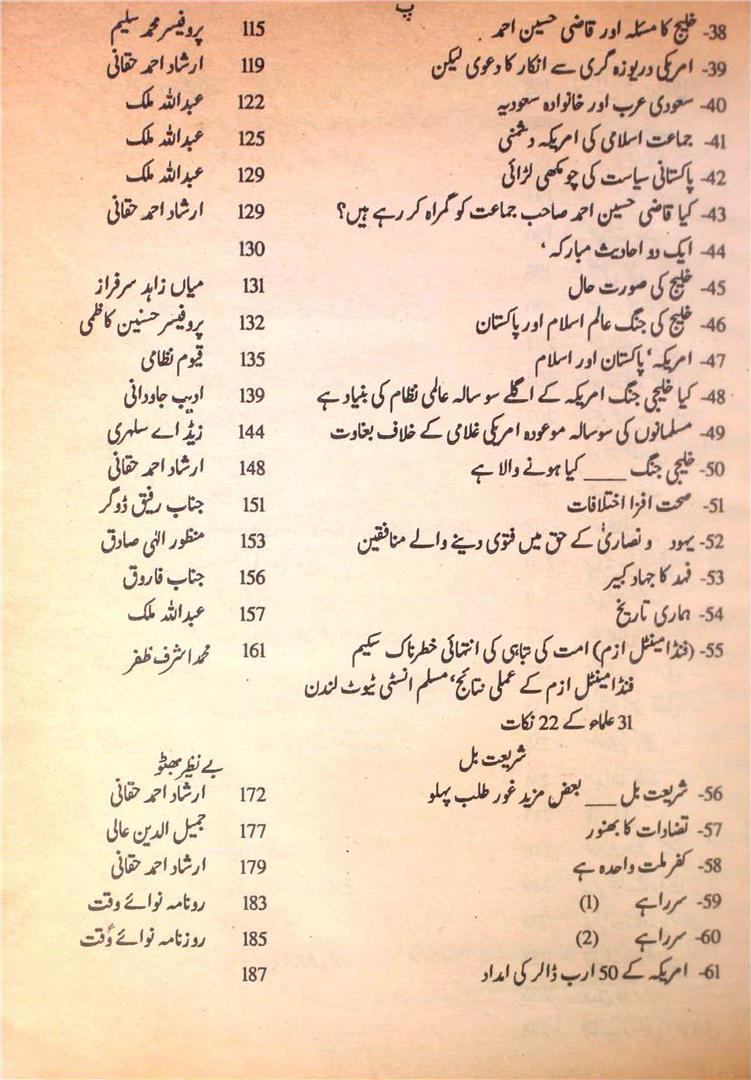 پ
38- خلیج کا مسئلہ اور قاضی حسین احمد 115 پروفیسر محمد سلیم
39- امریکی دریوزہ گری سے انکار کا دعوی لیکن 119 ارشاد احمد حقانی
40- سعودی عرب اور خانوادہ سعودیہ 122 عبداللہ ملک
41- جماعت اسلامی کی امریکہ دشمنی 125 عبداللہ ملک
42- پاکستانی سیاست کی چومکھی لڑائی 129 عبداللہ ملک
43- کیا قاضی حسین احمد صاحب جماعت کو گمراہ کر رہے ہیں؟ 129 ارشاد احمد حقانی
44- ایک دو احادیث مبارکہ ‘ 130
45- خلیج کی صورت حال 131 میاں زاہد سرفراز
46- خلیج کی جنگ عالم اسلام اور پاکستان 132 پروفیسر حسنین کاظمی
47- امریکہ‘ پاکستان اور اسلام 135 قیوم نظامی
48- کیا خلیجی جنگ امریکہ کے اگلے سو سالہ عالمی نظام کی بنیاد ہے 139 ادیب جاودانی
49- مسلمانوں کی سوسالہ موعودہ امریکی غلامی کے خلاف بغاوت 144 زیڈ اے سلہری
50- خلیجی جنگ ____ کیا ہونے والا ہے 148 ارشاد احمد حقانی
51- صحت افزا اختلافات 151 جناب رفیق ڈوگر
52- یہود و نصاریٰ کے حق میں فتوی دینے والے منافقین 153 منظور الہٰی صادق
53- فہد کا جہاد کبیر 156 جناب فاروق
54- ہماری تاریخ 157 عبداللہ ملک
55- (فنڈا مینٹل ازم) امت کی تباہی کی انتہائی خطرناک سکیم 161 محمد اشرف ظفر
فنڈا مینٹل ازم کے عملی نتائج‘ مسلم انسٹی ٹیوٹ لندن
31 علماء کے 22 نکات
شریعت بل بے نظیر بھٹو
56- شریعت بل ___ بعض مزید غور طلب پہلو 172 ارشاد احمد حقانی
57- تضادات کا بھنور 177 جمیل الدین عالی
58- کفر ملت واحدہ ہے 179 ارشاد احمد حقانی
59- سرراہے (1) 183 روزنامہ نوائے وقت
60- سرراہے (2) 185 روزنامہ نوائے وقت
61- امریکہ کے 50 ارب ڈالر کی امداد 187